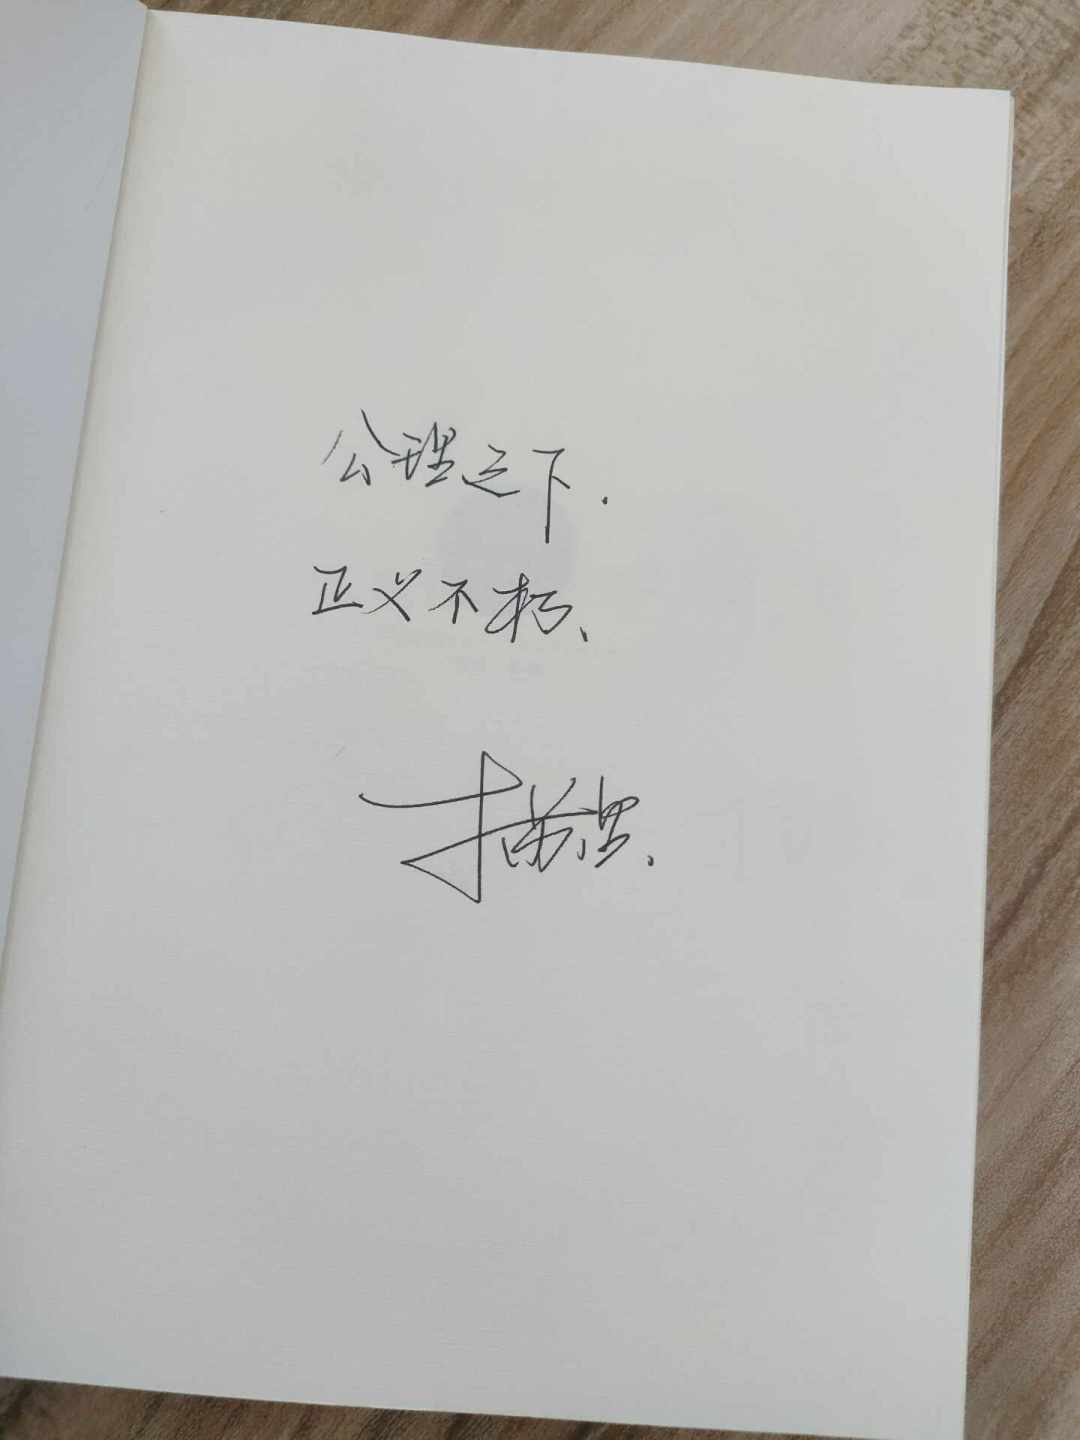 公理之下.
正义不朽、